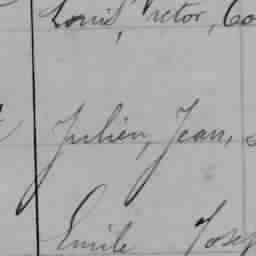 Louis, Victor, Co
Julien, Jean,
Emile Josep